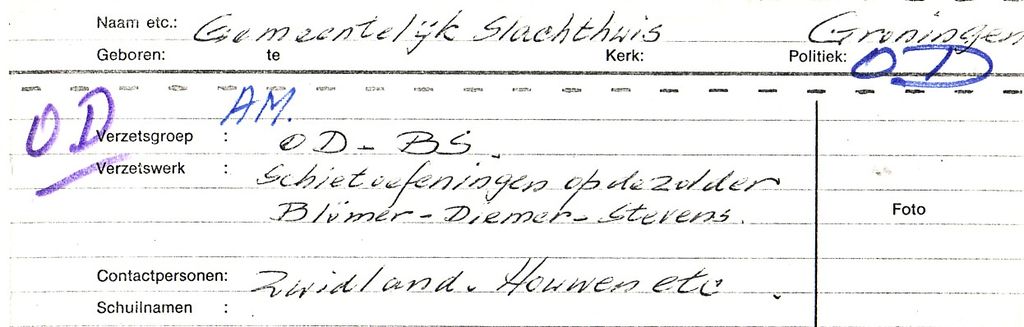 Naam etc.: Gemeentelijk Slachthuis Groningen
Geboren: te Kerk: Politiek: OD
OD AM.
Verzetsgroep : OD - BS.
Verzetswerk : Schietoefeningen op de zolder
Blümer - Diemer - Stevens.
Foto
Contactpersonen: Zuidland. Houwen etc.
Schuilnamen :